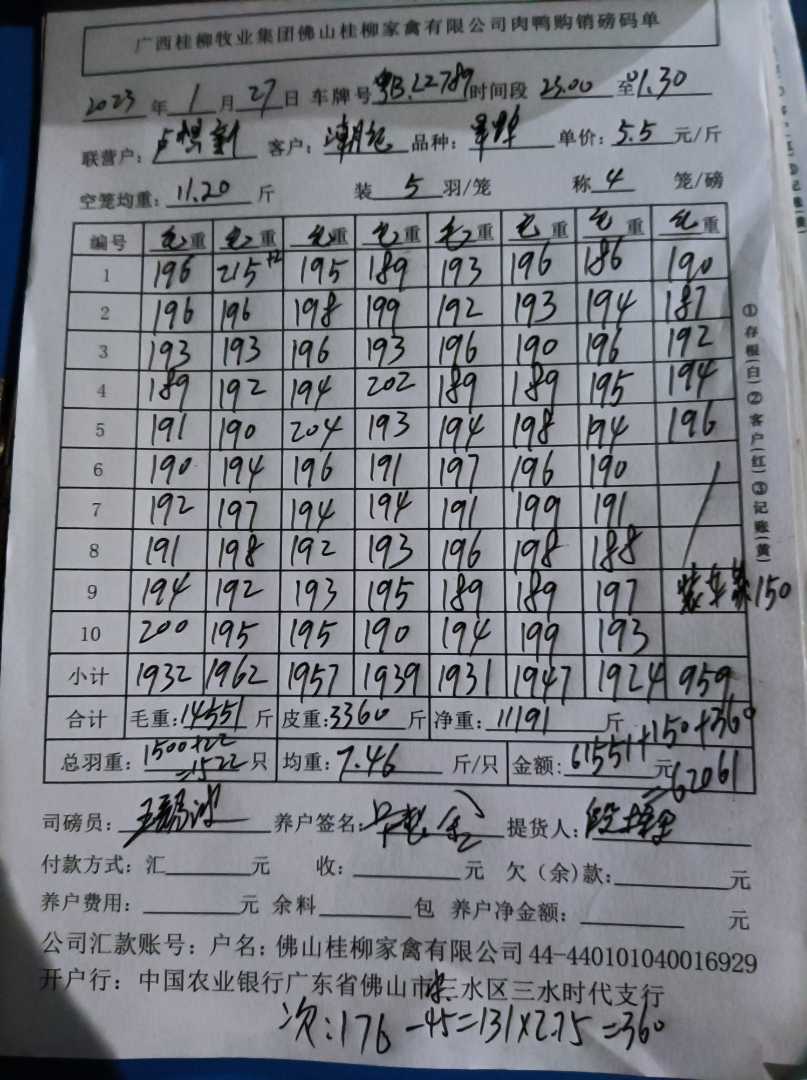 广西桂柳牧业集团佛山桂柳家禽有限公司肉鸭购销磅码单
2023 年 1 月 27 日 车牌号 粤B.L2789 时间段 23.00 至 01.30
联营户: 客户: 潮记 品种: 单价: 5.5 元/斤
空笼均重: 11.20 斤 装 5 羽/笼 称 4 笼/磅
编号 毛重 毛重 毛重 毛重 毛重 毛重 毛重 毛重
1 196 215 +2 195 189 193 196 186 190
2 196 196 198 199 192 193 194 187
3 193 193 196 193 196 190 196 192
4 189 192 194 202 189 189 195 194
5 191 190 204 193 194 198 194 196
6 190 194 196 191 197 196 190
7 192 197 194 194 191 199 191
8 191 198 192 193 196 198 188
9 194 192 193 195 189 189 197 装车 150
10 200 195 195 190 194 199 193
小计 1932 1962 1957 1939 1931 1947 1924 959
合计 毛重: 14551 斤 皮重: 3360 斤 净重: 11191 斤
总羽重: 1500+22 =1522 只 均重: 7.46 斤/只 金额: 61551+150+360 元 =62061
司磅员: 养户签名: 提货人:
付款方式: 汇 元 收: 元 欠(余)款: 元
养户费用: 元 余料 包 养户净金额: 元
公司汇款账号: 户名: 佛山桂柳家禽有限公司 44-440101040016929
开户行: 中国农业银行广东省佛山市三水区三水时代支行
次: 176 -45=131×2.75=360
①存根(白)②客户(红)③记账(黄)